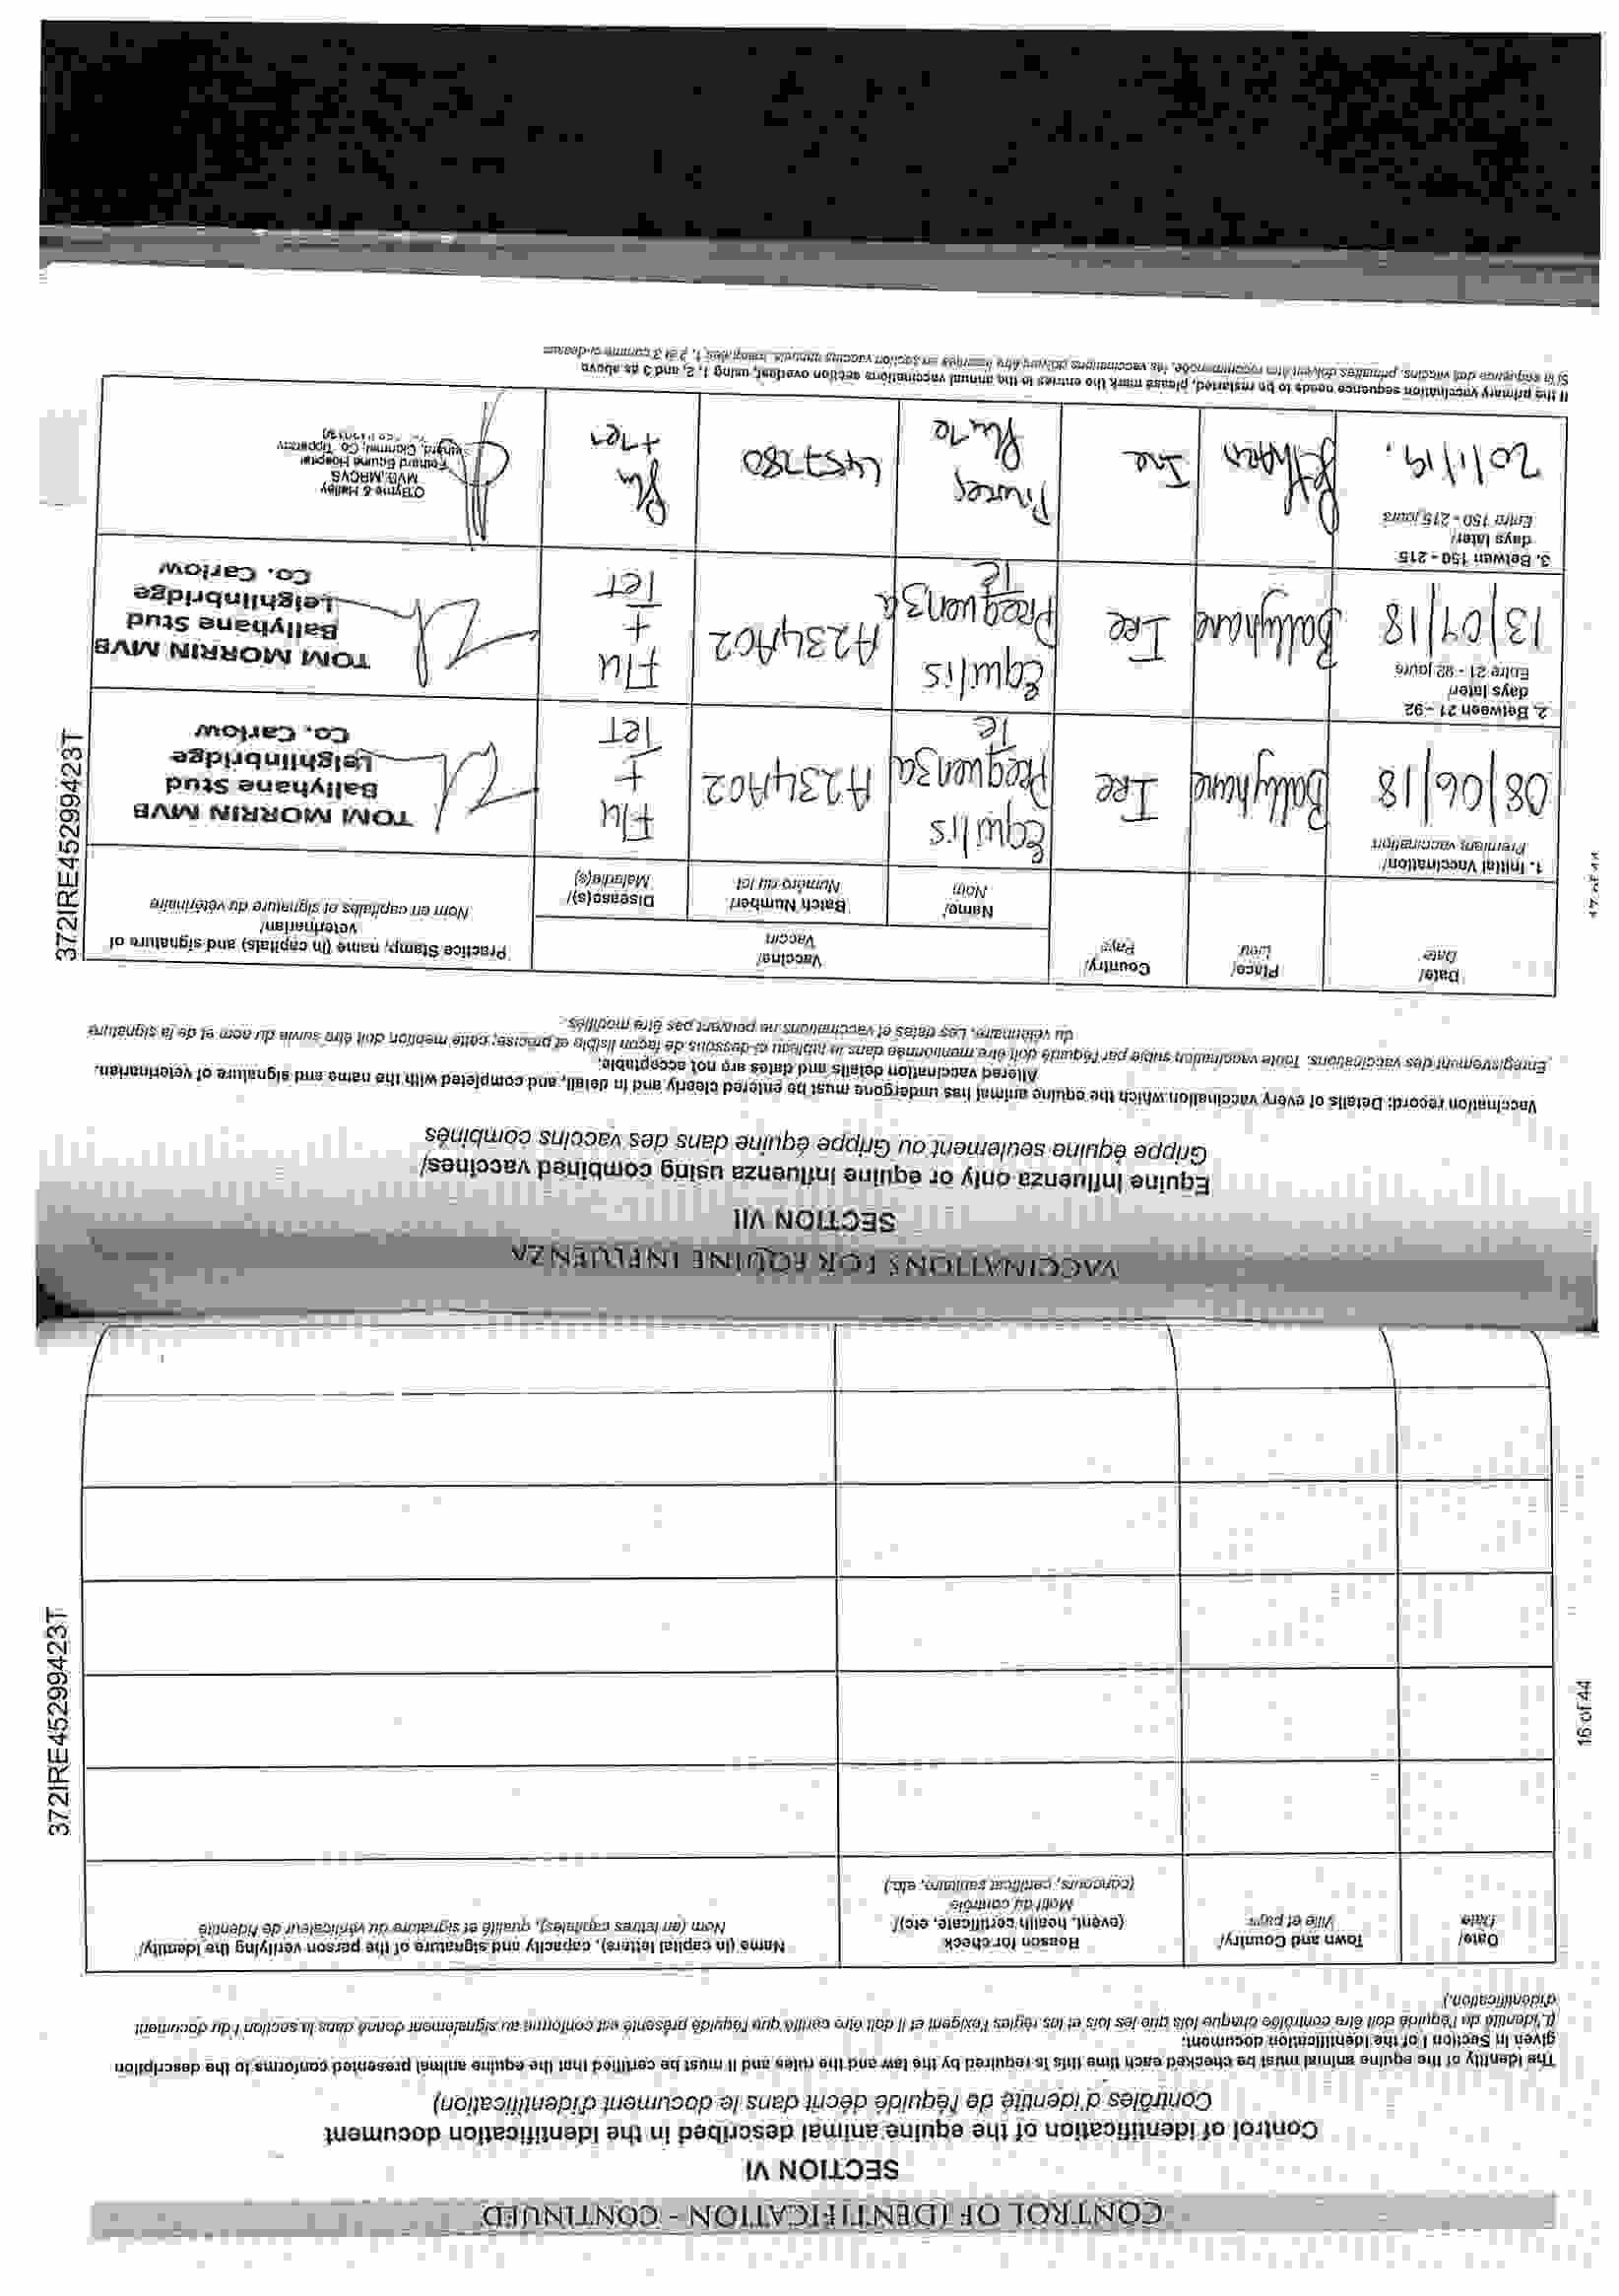 CONTROL OF IDENTIFICATION - CONTINUED
SECTION VI
Control of identification of the equine animal described in the identification document
Contrôles d'identité de l'équidé décrit dans le document d'identification)
The identity of the equine animal must be checked each time this is required by the law and the rules and it must be certified that the equine animal presented conforms to the description
given in Section I of the identification document:
(L'identité du l'équidé doit être contrôlée chaque fois que les lois et les règles l'exigent et il doit être certifié que l'équidé présenté est conforme au signalement donné dans la section I du document
d'identification.)
Date/
Date
Town and Country/
Ville et pays
Reason for check
(event, health certificate, etc)/
Motif du contrôle
(concours, certificat sanitaire, etc.)
Name (in capital letters), capacity and signature of the person verifying the identity/
Nom (en lettres capitales), qualité et signature du vérificateur de l'identité
16 of 44
372IRE45299423T
VACCINATIONS FOR EQUINE INFLUENZA
SECTION VII
Equine Influenza only or equine influenza using combined vaccines/
Grippe équine seulement ou Grippe équine dans des vaccins combinés
Vaccination record: Details of every vaccination which the equine animal has undergone must be entered clearly and in detail, and completed with the name and signature of veterinarian.
Altered vaccination details and dates are not acceptable.
Enregistrement des vaccinations. Toute vaccination subie par l'équidé doit être mentionnée dans le tableau ci-dessous de façon lisible et précise; cette mention doit être suivie du nom et de la signature
du vétérinaire. Les dates et vaccinations ne peuvent pas être modifiés.
Date/
Date
Place/
Lieu
Country/
Pays
Vaccine/
Vaccin
Name/
Nom
Batch Number/
Numéro du lot
Disease(s)/
Maladie(s)
Practice Stamp, name (in capitals) and signature of
veterinarian/
Nom en capitales et signature du vétérinaire
1. Initial Vaccination/
Premiere vaccination
08/06/18
Ballyhane
Ire
Equilis
Prequenza
Te
A234A02
Flu
+
Tet
TOM MORRIN MVB
Ballyhane Stud
Leighlinbridge
Co. Carlow
2. Between 21 - 92
days later/
Entre 21 - 92 jours
13/07/18
Ballyhane
Ire
Equilis
Prequenza
Te
A234A02
Flu
+
Tet
TOM MORRIN MVB
Ballyhane Stud
Leighlinbridge
Co. Carlow
3. Between 150 - 215
days later/
Entre 150 - 215 jours
20/1/19.
Ire
L457280
Flu
+Tet
O'Byrne & Halley
MVB, MRCVS
Fethard Equine Hospital
Fethard, Clonmel, Co. Tipperary
If the primary vaccination sequence needs to be restarted, please mark the entries in the annual vaccinations section overleaf, using 1, 2, and 3 as above
17 of 44
372IRE45299423T